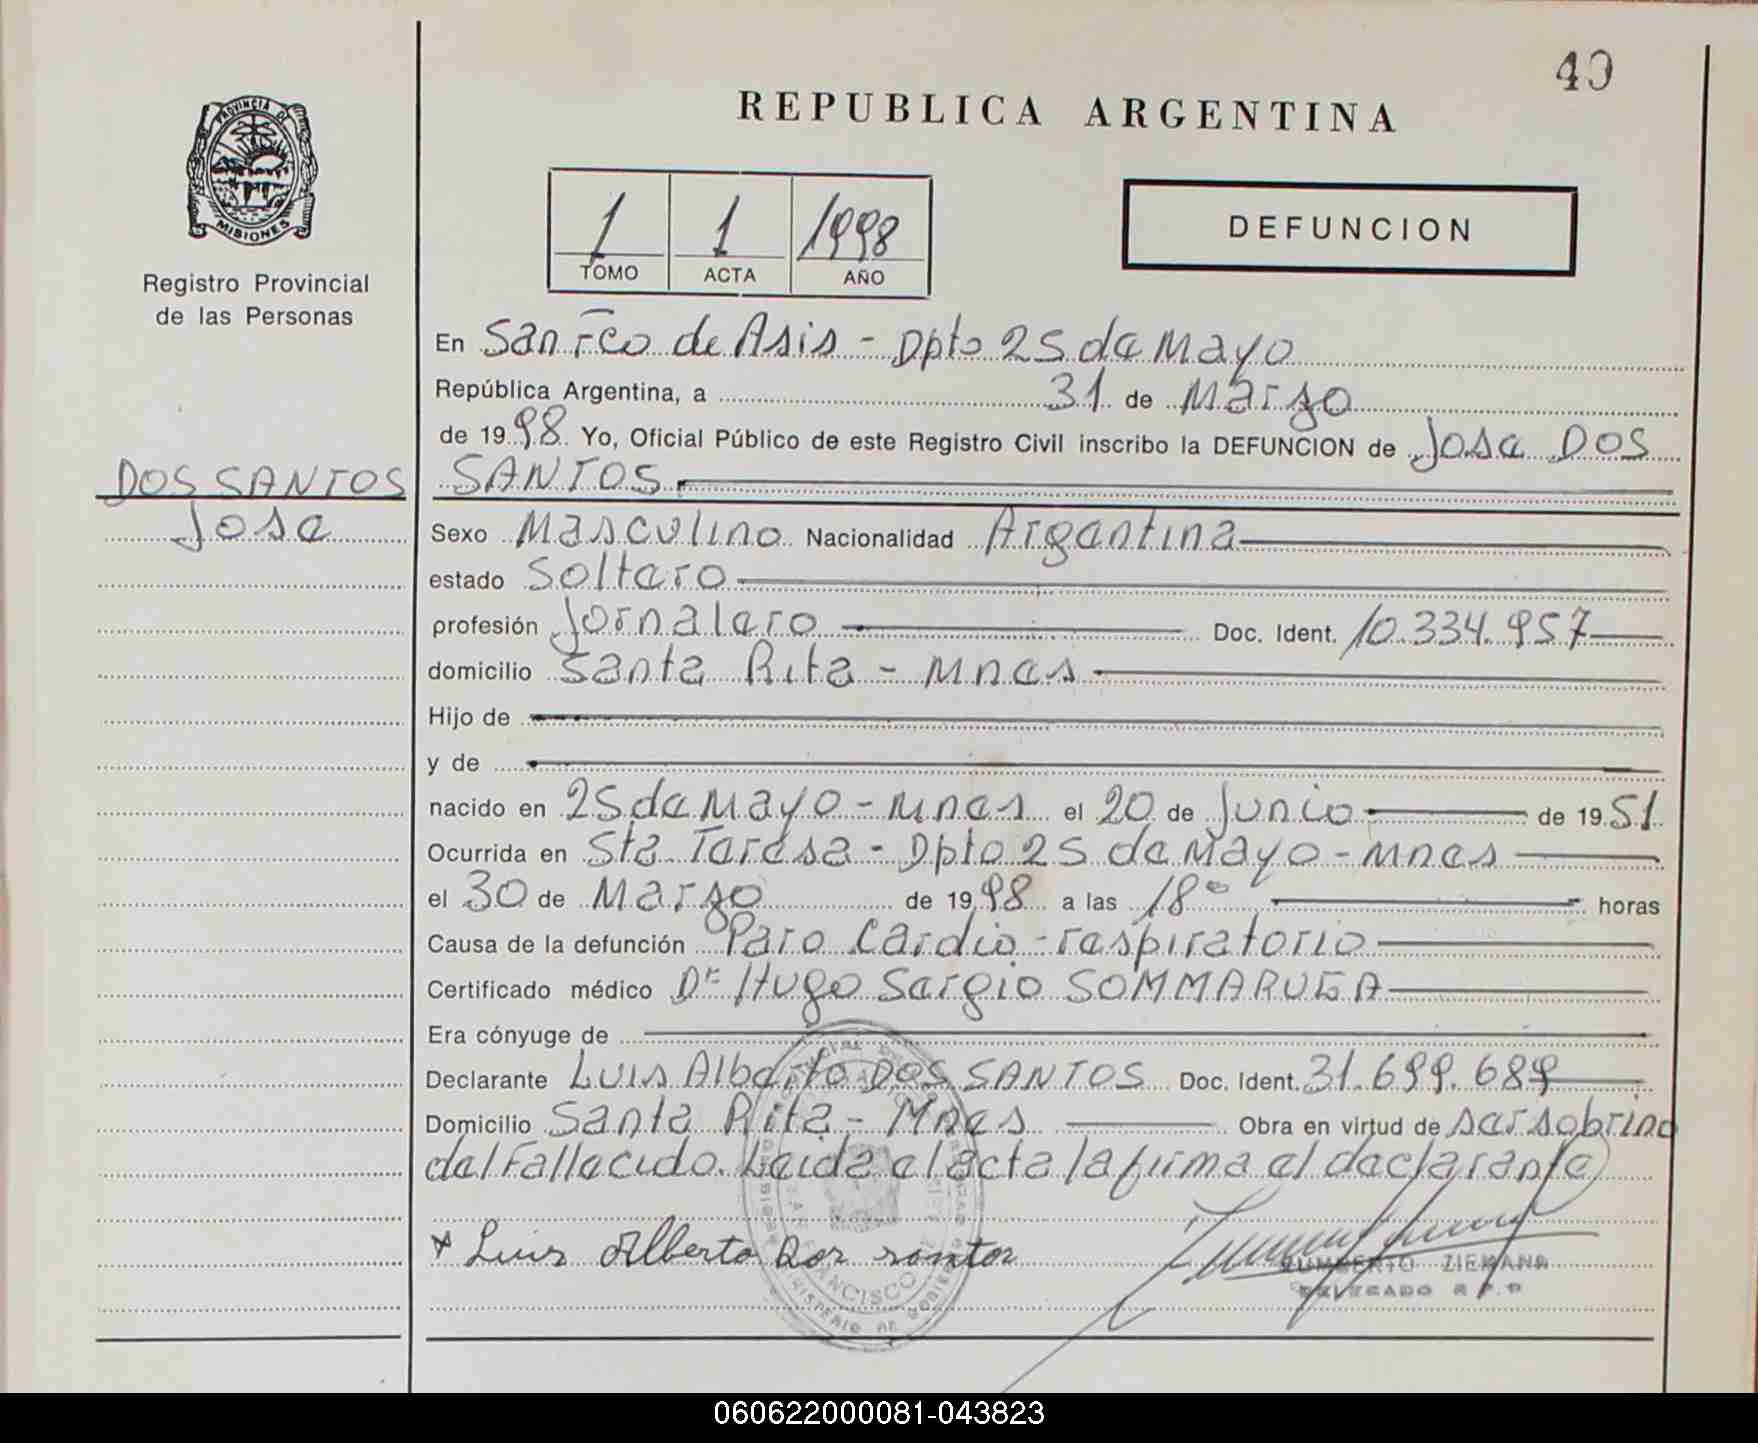 40
REPUBLICA ARGENTINA
PROVINCIA DE
MISIONES
Registro Provincial
de las Personas
1 1 1998
TOMO ACTA AÑO
DEFUNCION
En San Fco de Asis - Dpto 25 de Mayo
República Argentina, a 31 de Marzo
de 1998 Yo, Oficial Público de este Registro Civil inscribo la DEFUNCION de Jose DOS
SANTOS
DOS SANTOS
Jose
Sexo Masculino Nacionalidad Argentina
estado Soltero
profesión Jornalero Doc. Ident. 10.334.957
domicilio Santa Rita - Mnes
Hijo de
y de
nacido en 25 de Mayo - Mnes el 20 de Junio de 1951
Ocurrida en Sta Teresa - Dpto 25 de Mayo - Mnes
el 30 de Marzo de 1998 a las 18° horas
Causa de la defunción Paro Cardio-respiratorio
Certificado médico Dr Hugo Sergio SOMMARUGA
Era cónyuge de
Declarante Luis Alberto DOS SANTOS Doc. Ident. 31.699.689
Domicilio Santa Rita - Mnes Obra en virtud de ser sobrino
del Fallecido. Leida el acta la firma el declarante
Luis Alberto Dos santos
HUMBERTO ZIEMANN
DELEGADO R.P.P
060622000081-043823